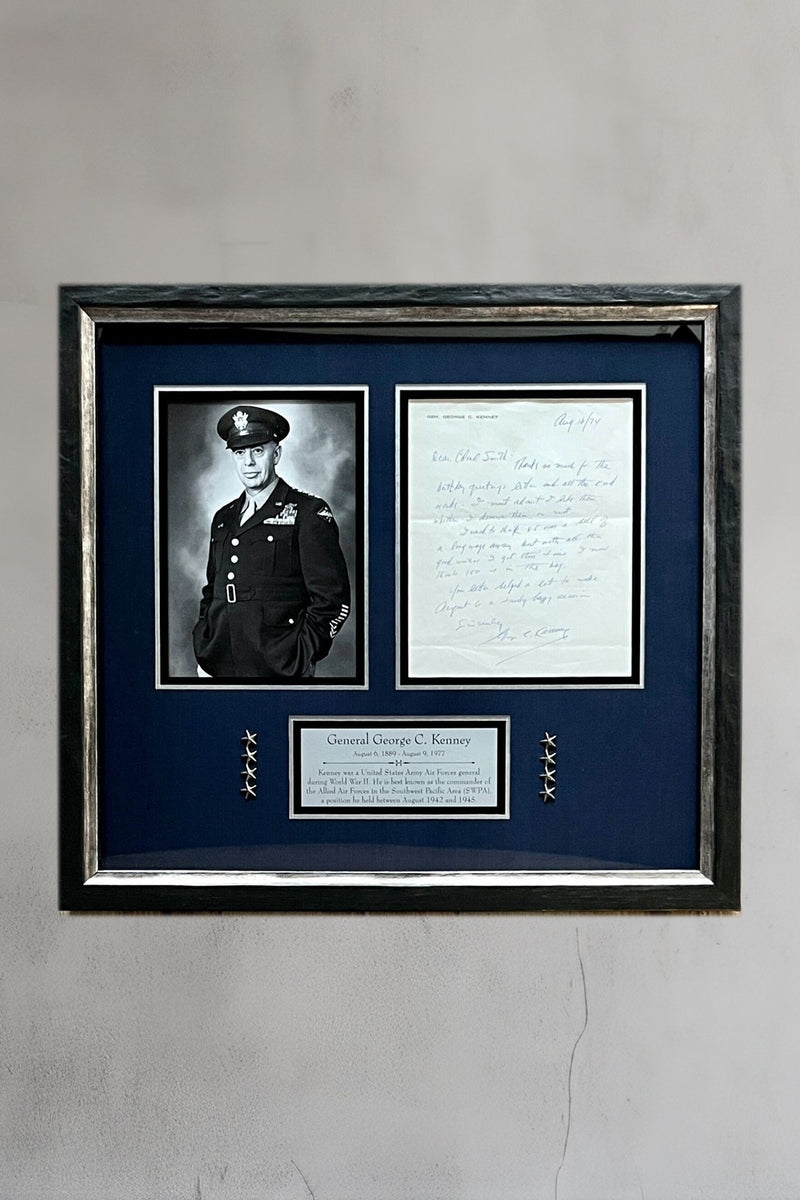 GEN. GEORGE C. KENNEY
Aug 16/74
Dear Chad Smith
Thanks so much for the
birthday greetings letter and all the kind
words. I must admit I like them
whether I deserve them or not.
I used to think 85 was a hell of
a long ways away but with all the
good wishes I got this time I now
think 100 is in the bag.
Your letter helped a lot to make
August 6 a truly happy occasion
Sincerely
George C. Kenney
General George C. Kenney
August 6, 1889 - August 9, 1977
Kenney was a United States Army Air Forces general
during World War II. He is best known as the commander of
the Allied Air Forces in the Southwest Pacific Area (SWPA),
a position he held between August 1942 and 1945.